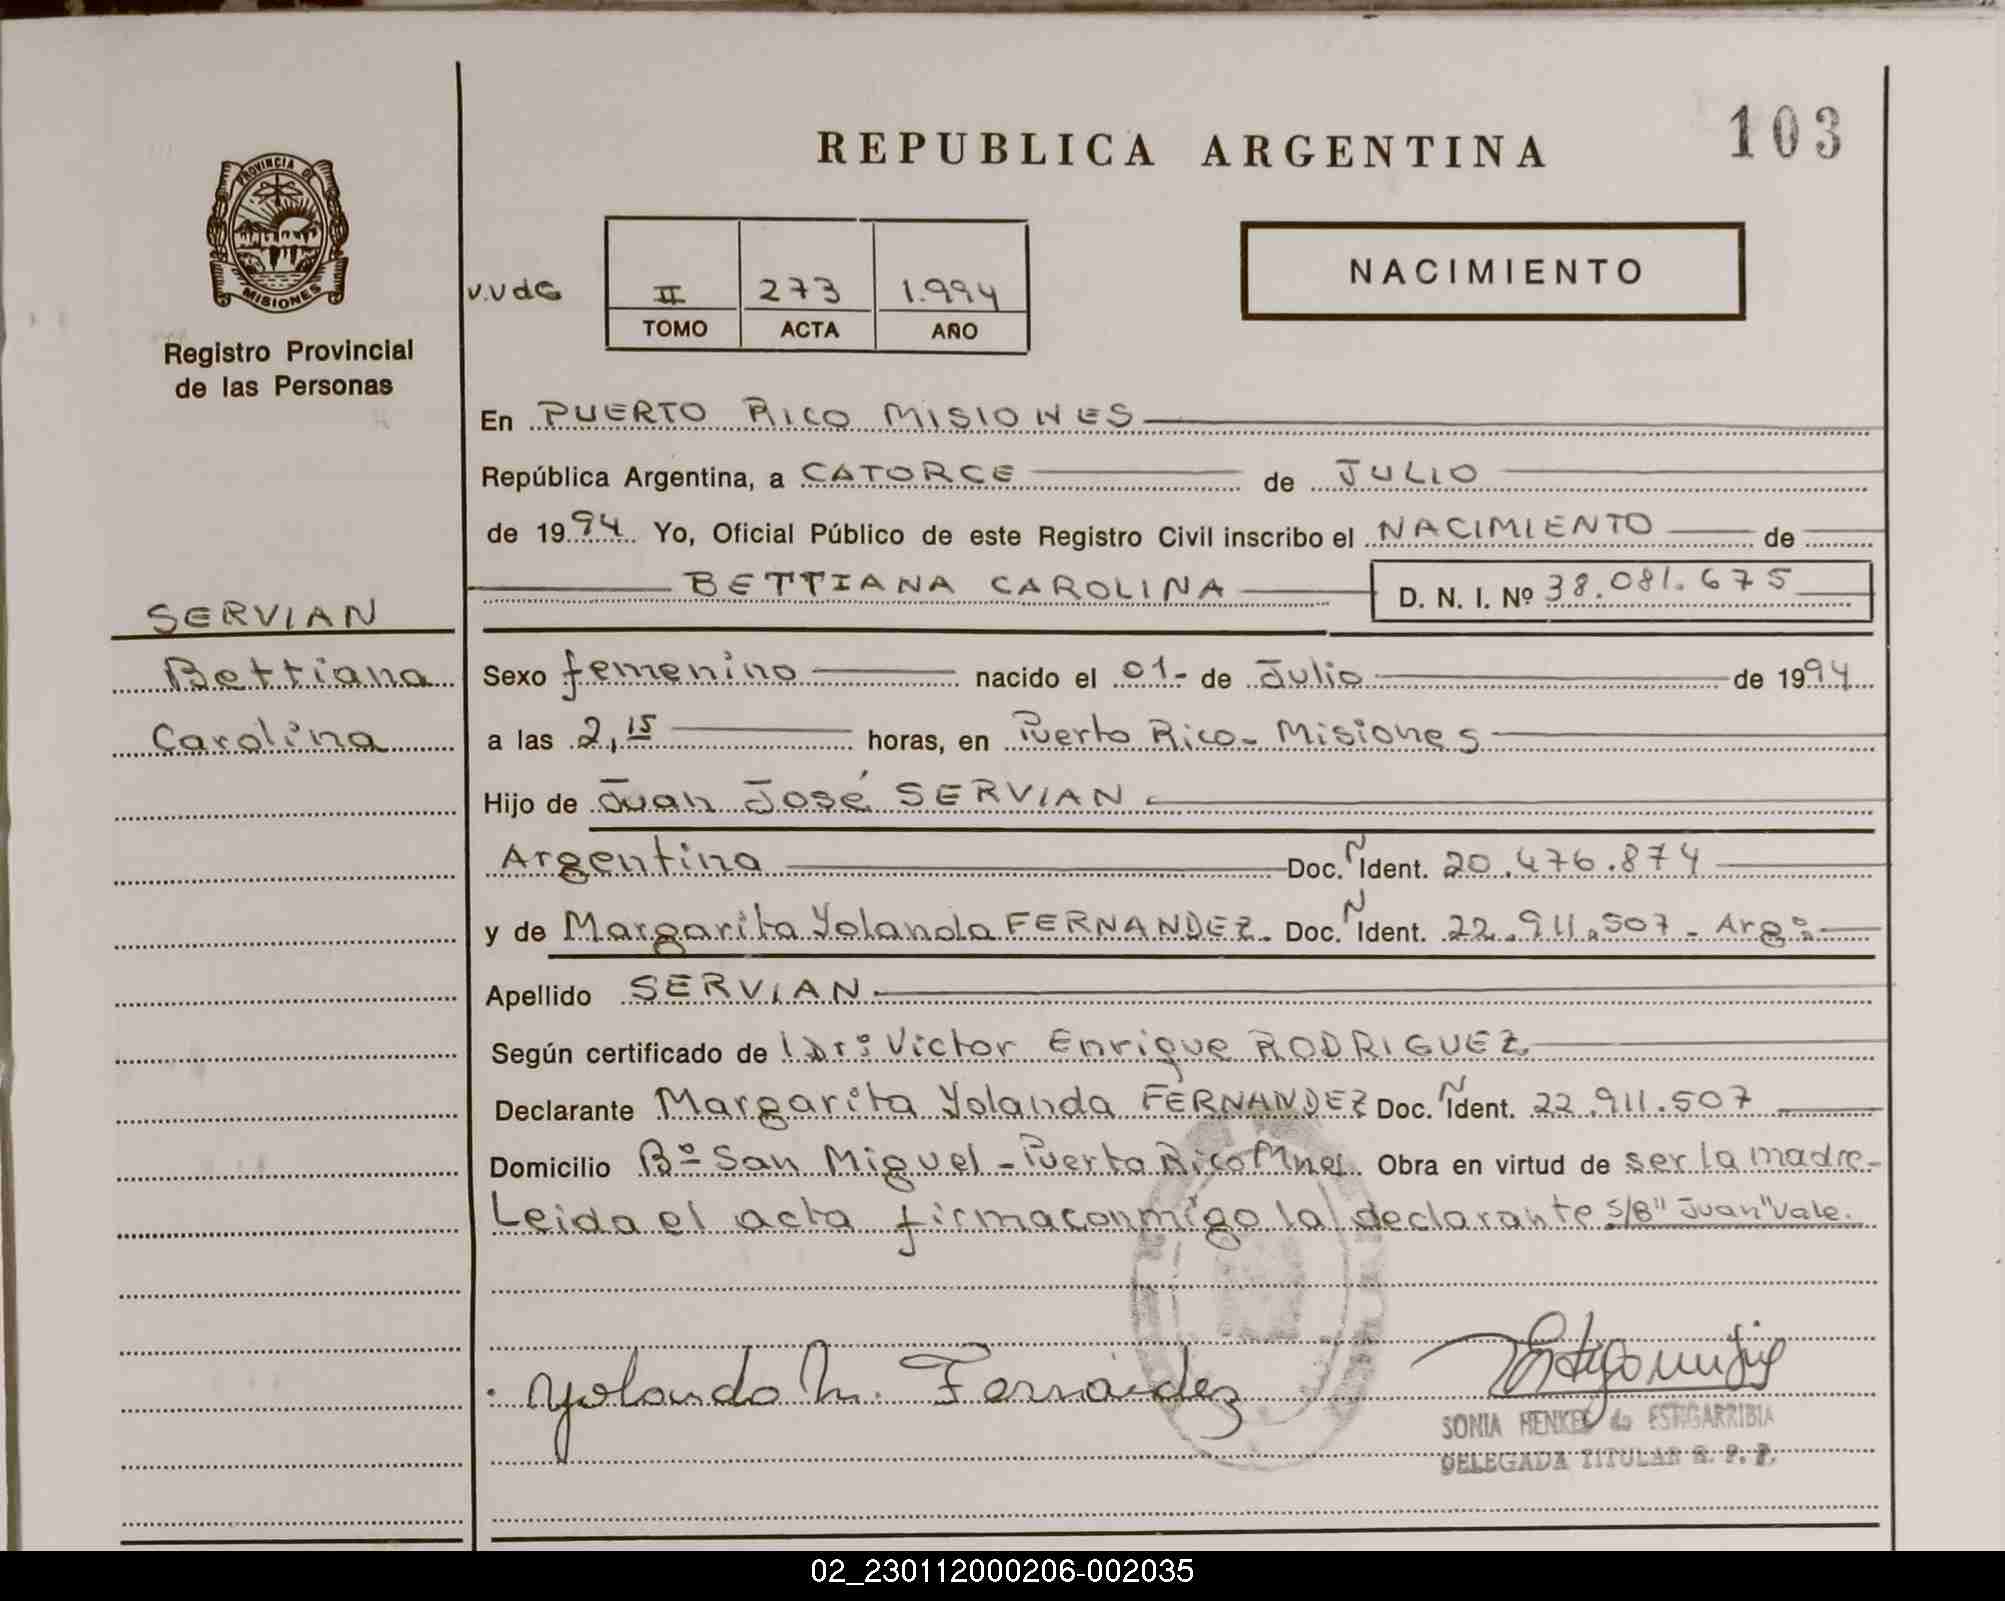 REPUBLICA ARGENTINA
103
PROVINCIA DE
MISIONES
Registro Provincial
de las Personas
v.v d G
II 273 1.994
TOMO ACTA AÑO
NACIMIENTO
En PUERTO RICO MISIONES
República Argentina, a CATORCE de JULIO
de 1994 Yo, Oficial Público de este Registro Civil inscribo el NACIMIENTO de
BETTIANA CAROLINA D. N. I. Nº 38.081.675
SERVIAN
Bettiana
Carolina
Sexo femenino nacido el 01- de Julio de 1994
a las 2,15 horas, en Puerto Rico- Misiones
Hijo de Juan José SERVIAN
Argentina Doc. Ñ Ident. 20.476.874
y de Margarita Yolanda FERNANDEZ. Doc. Ñ Ident. 22.911.507 - Argº
Apellido SERVIAN
Según certificado de Drº Victor Enrique RODRIGUEZ
Declarante Margarita Yolanda FERNANDEZ Doc. Ñ Ident. 22.911.507
Domicilio Bº San Miguel - Puerto Rico Mnes. Obra en virtud de ser la madre-
Leida el acta firma conmigo la declarante S/B "Juan" Vale.
Yolanda M. Fernández
SONIA HENKEL de ESTIGARRIBIA
DELEGADA TITULAR R. P. P.
02_230112000206-002035